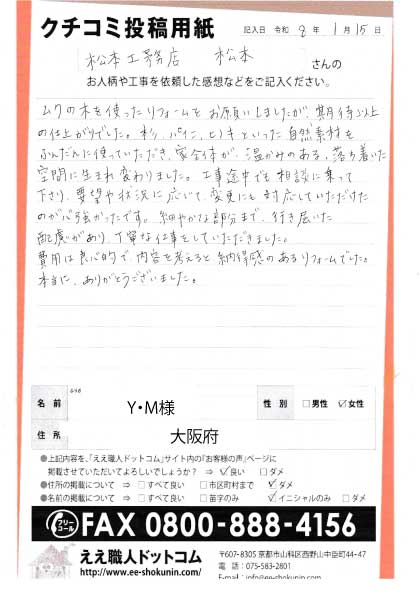 クチコミ投稿用紙
記入日 令和 8年 1月 15日
松本工務店 松本 さんの
お人柄や工事を依頼した感想などをご記入ください。
ムクの木を使ったリフォームをお願いしましたが、期待以上
の仕上がりでした。杉、パイン、ヒノキといった自然素材を
ふんだんに使っていただき、家全体が、温かみのある、落ち着いた
空間に生まれ変わりました。工事途中でも相談に乗って
下さり、要望や状況に応じて、変更にも対応していただけた
のが心強かったです。細やかな部分まで、行き届いた
配慮があり、丁寧な仕事をしていただきました。
費用は良心的で、内容を考えると納得感のあるリフォームでした。
本当に、ありがとうございました。
名前 Y・M様 性別 □男性 ☑女性
住所 大阪府
●上記内容を、「ええ職人ドットコム」サイト内の「お客様の声」ページに
掲載させていただいてよろしいでしょうか? ⇒ ☑良い □ダメ
●住所の掲載について ⇒ □すべて良い □市区町村まで ☑ダメ
●名前の掲載について ⇒ □すべて良い □苗字のみ ☑イニシャルのみ □ダメ
フリーコール FAX 0800-888-4156
ええ職人ドットコム
http://www.ee-shokunin.com/
〒607-8305 京都市山科区西野山中臣町44-47
電話:075-583-2801
E-mail:info@ee-shokunin.com